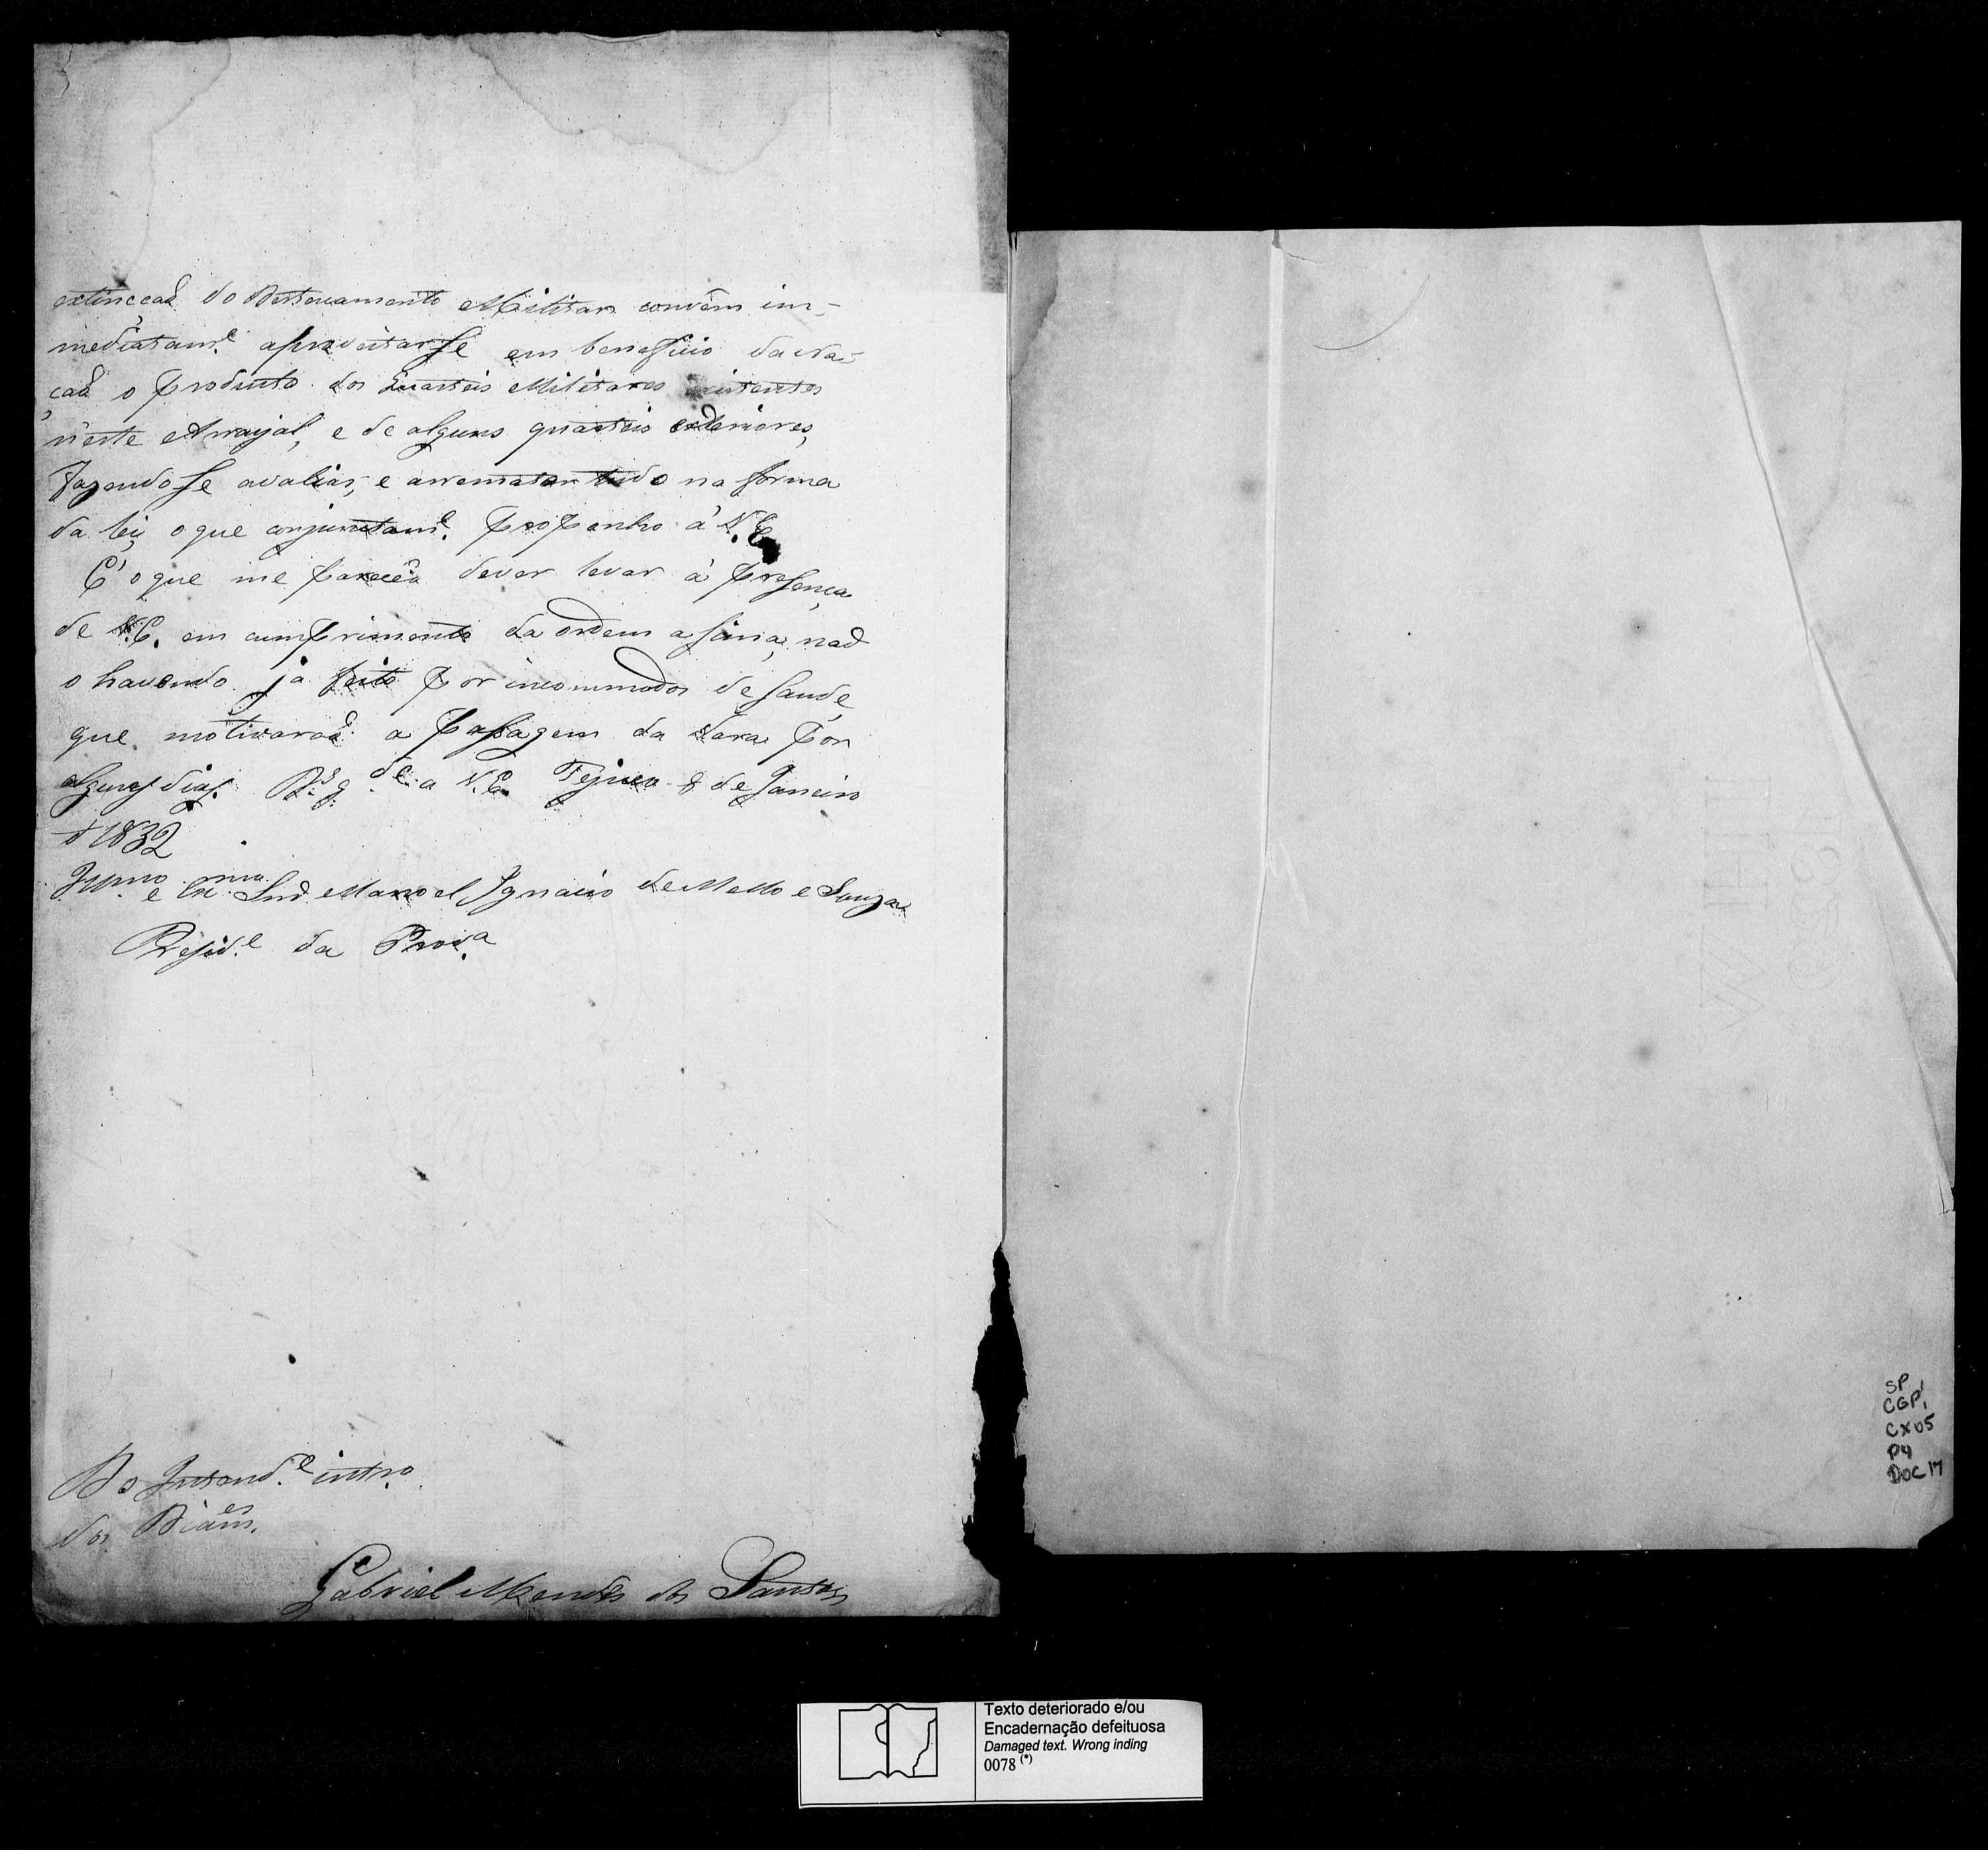 extincçaõ do Destacamento Militar convêm im-
mediatam.e aproveitarse em beneficio da Na-
çaõ o producto dos Quarteis Militares existentes
n'este Arrayal, e de alguns quarteis exteriores,
fazendose avaliar, e arrematar tudo na forma
da Ley, o que conjunctam.e proponho á V.E.
É o que me pareceo dever levar á presença
de V.E. em cumprimento da ordem acima, naõ
o havendo já feito por incommodos de saude,
que motivaraõ a passagem da Vara por
alguns dias. D.s g.de a V.E. Tejuco 8 de Janeiro
d'1832
Illmo. e Ex.mo Snr. Manoel Ignacio de Mello e Souza
Presid.e da Prov.a
Do Intend.e intr.o
dos Diam.es
Gabriel Mendes dos Santos
WHIT
1829
SP
CGP1
CX05
P4
DOC 17
Texto deteriorado e/ou
Encadernação defeituosa
Damaged text. Wrong inding
0078 (*)